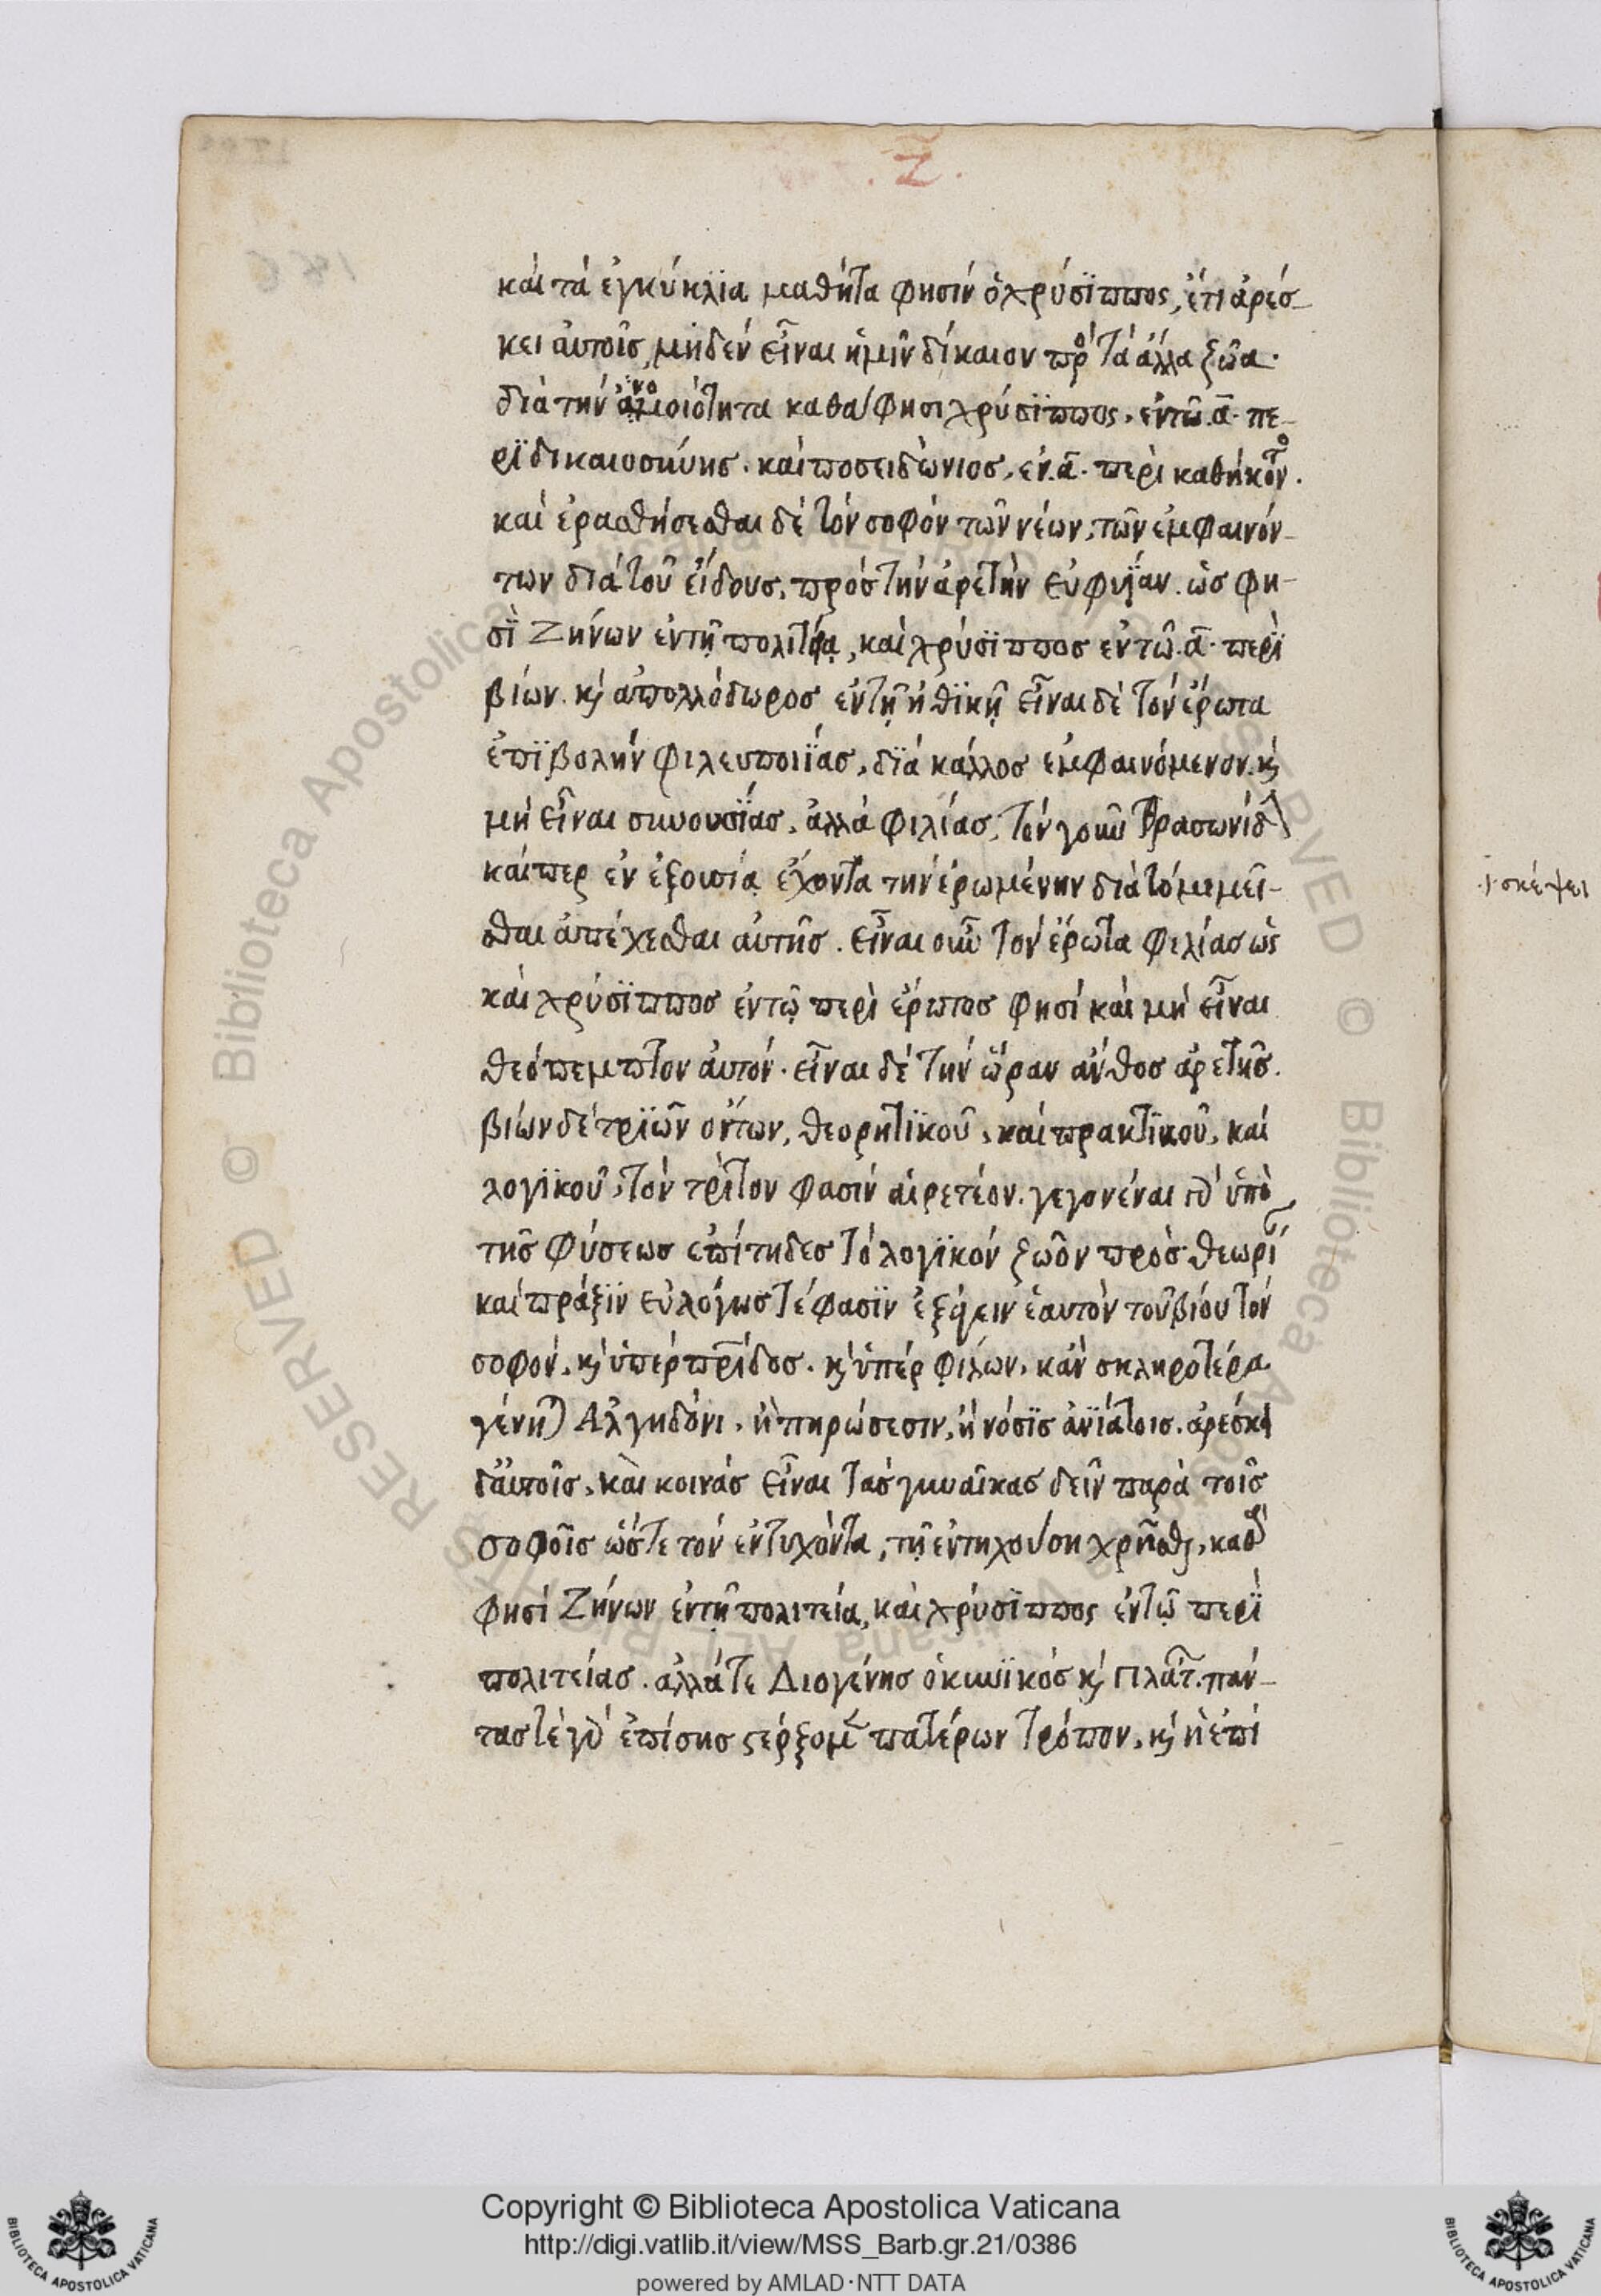 .Ζ.
καὶ τά ἐγκύκλϊα μαθήτα φησίν ὁ χρύσϊππος, ἔτι ἀρέσ-
κει ἀυτοῖς, μηδέν εἶναι ἡμῖν δίκαιον πρὸ τά ἄλλα ζῶα·
διὰ τήν ἀνομοιότητα καθα φησι χρύσϊππος, ἐντῶ .ᾱ. πε-
ρϊ δικαιοσύνης. καί ποσειδώνιος, εν .ᾱ. περὶ καθηκόντ.
καί ἐρασθήσεσθαι δέ τόν σοφόν τῶν νέων, τῶν ἐμφαινόν-
των διά τοῦ εἴδους, πρός τήν ἀρετὴν εὐφυΐαν. ὡς φη-
σῒ Ζήνων ἐντῇ πολιτείᾳ, καὶ χρύσϊππος εν τῶ .ᾱ. περὶ
βίων. κ' ἀπολλόδωρος ἐν τῇ ἠθϊκῇ εἶναι δὲ τόν ἔρωτα
ἐπϊβολήν φιλευποιΐας, δϊά κάλλος ἐμφαινόμενον. κ'
μή εἶναι συνουσΐας, ἀλλά φιλίας, τόν γοῦν Θρασωνίδ
καίπερ ἐν ἐξουσίᾳ ἔχοντα τήν ἐρωμένην διὰ τό μιμεῖ-
σθαι ἀπέχεσθαι ἀυτῆς. εἶναι οὖν τόν ἔρωτα φιλίας ὡς
καὶ χρύσϊππος ἐντῷ περὶ ἔρωτος φησί καὶ μή εἶναι
θεόπεμπτον ἀυτόν. εἶναι δέ τήν ὥραν ἄνθος ἀρετῆς.
βίων δέ τρϊῶν ὄντων, θεορητϊκοῦ, καί πρακτϊκοῦ, καί
λογϊκοῦ, τόν τρὶτον φασίν αἱρετέον. γεγονέναι γδ' ὑπὸ
τῆς φύσεως ἐπίτηδες τό λογϊκόν ζῶον πρὸς θεωρί
καί πρᾶξϊν εὐλόγως τέ φασϊν ἐξάγειν ἑαυτὸν τοῦ βίου τόν
σοφόν. κ' ὑπέρ πρίδος. κ' ὑπέρ φίλων, κἄν σκληροτέρα
γένητ Ἀλγηδόνι, ἢ πηρώσεσιν, ἢ νόσϊς ἀνϊάτοις. ἀρέσκει
δ'ἀυτοῖς, καὶ κοινάς εἶναι τάς γυναῖκας δεῖν παρὰ τοῖς
σοφοῖς ὥστε τόν ἐντυχόντα, τῇ ἐντηχούση χρῆσθ, καθ
φησί Ζήνων ἐντῇ πολιτεία, καὶ χρύσϊππος ἐντῷ περϊ
πολιτείας. ἀλλά τε Διογένης ὁ κυνϊκός κ' Πλάτ. πάν-
τας τέ γδ' ἐπίσης ςέρξομ πατέρων τρόπον, κ' ἡ ἐπί
.ἰ. σκέψει
Copyright © Biblioteca Apostolica Vaticana
http://digi.vatlib.it/view/MSS_Barb.gr.21/0386
powered by AMLAD·NTT DATA